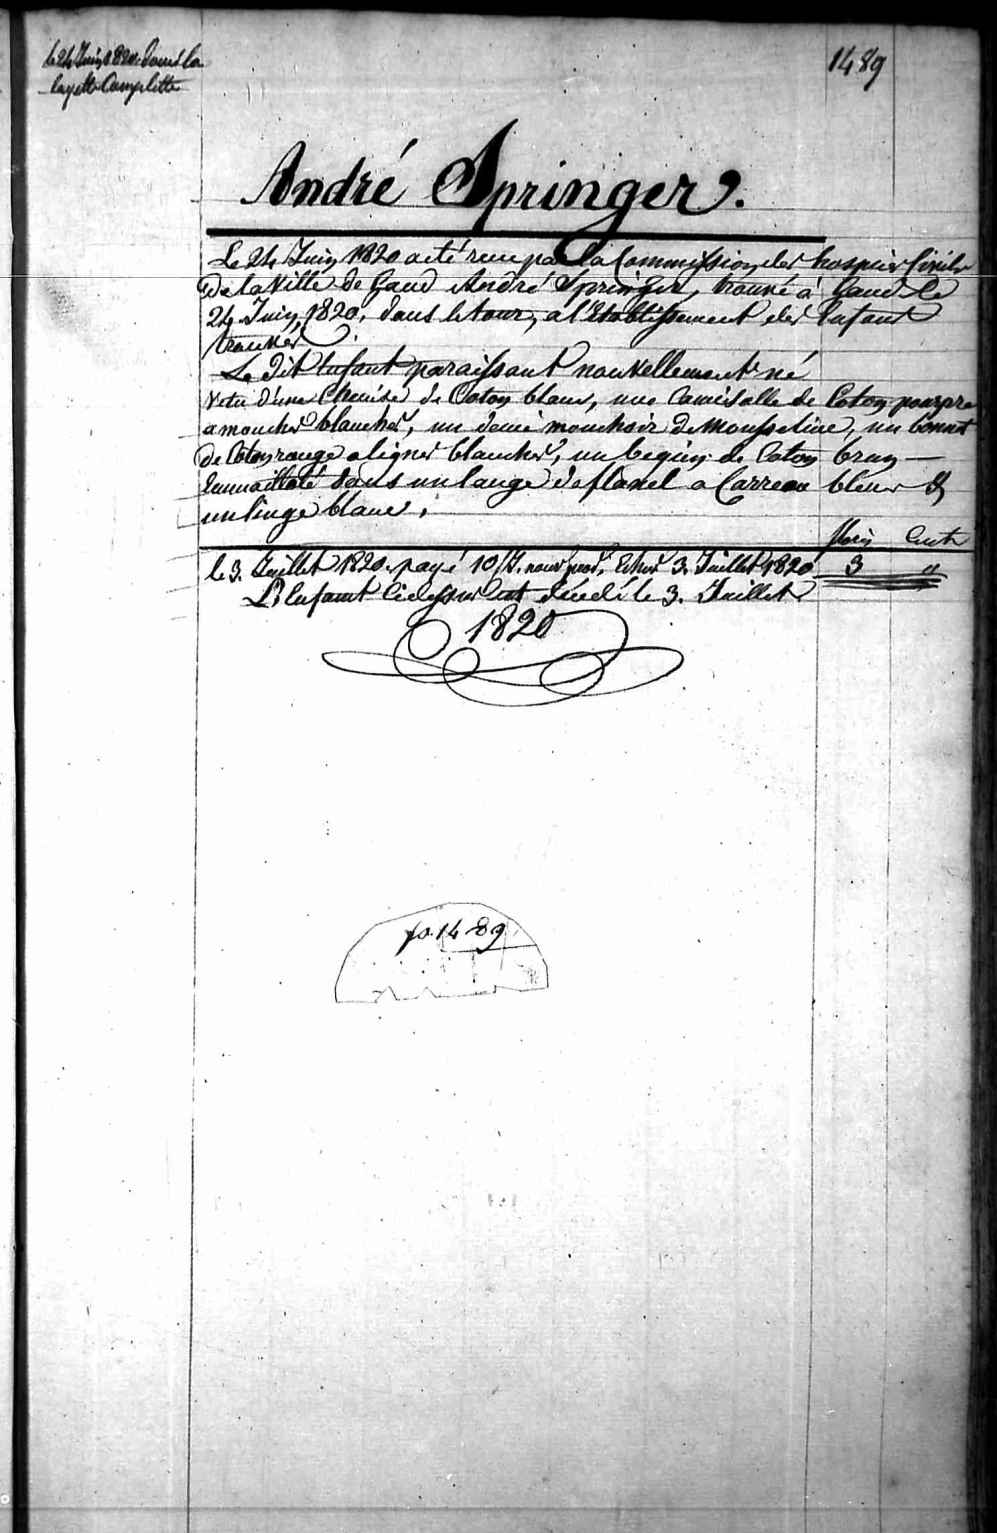 le 24 Juin 1820. donné la
layette Complette
1489
André Springer.
Le 24 Juin 1820 a eté recu par la Commission des hospices Civils
de la Ville de Gand André Springer, trouvé à Gand le
24 Juin 1820, dans le tour, a l'Etablissement des Enfants
trouvés.
Le dit Enfant paraissant nouvellement né
vetu d'une Chemise de Coton blanc, une Camisolle de Coton pourpre
a mouches blanches, un demi mouchoir de Mousseline, un bonnet
de Coton rouge a lignes blanches, un beguin de Coton brun —
Emmailloté dans un lange de flanel a Carreau bleus &
un linge blanc.
florin Cents
le 3. Juillet 1820. payé 10/J. Echu 3. Juillet 1820 3 "
L'Enfant Cidessus est décédé le 3. Juillet
1820
fo. 1489